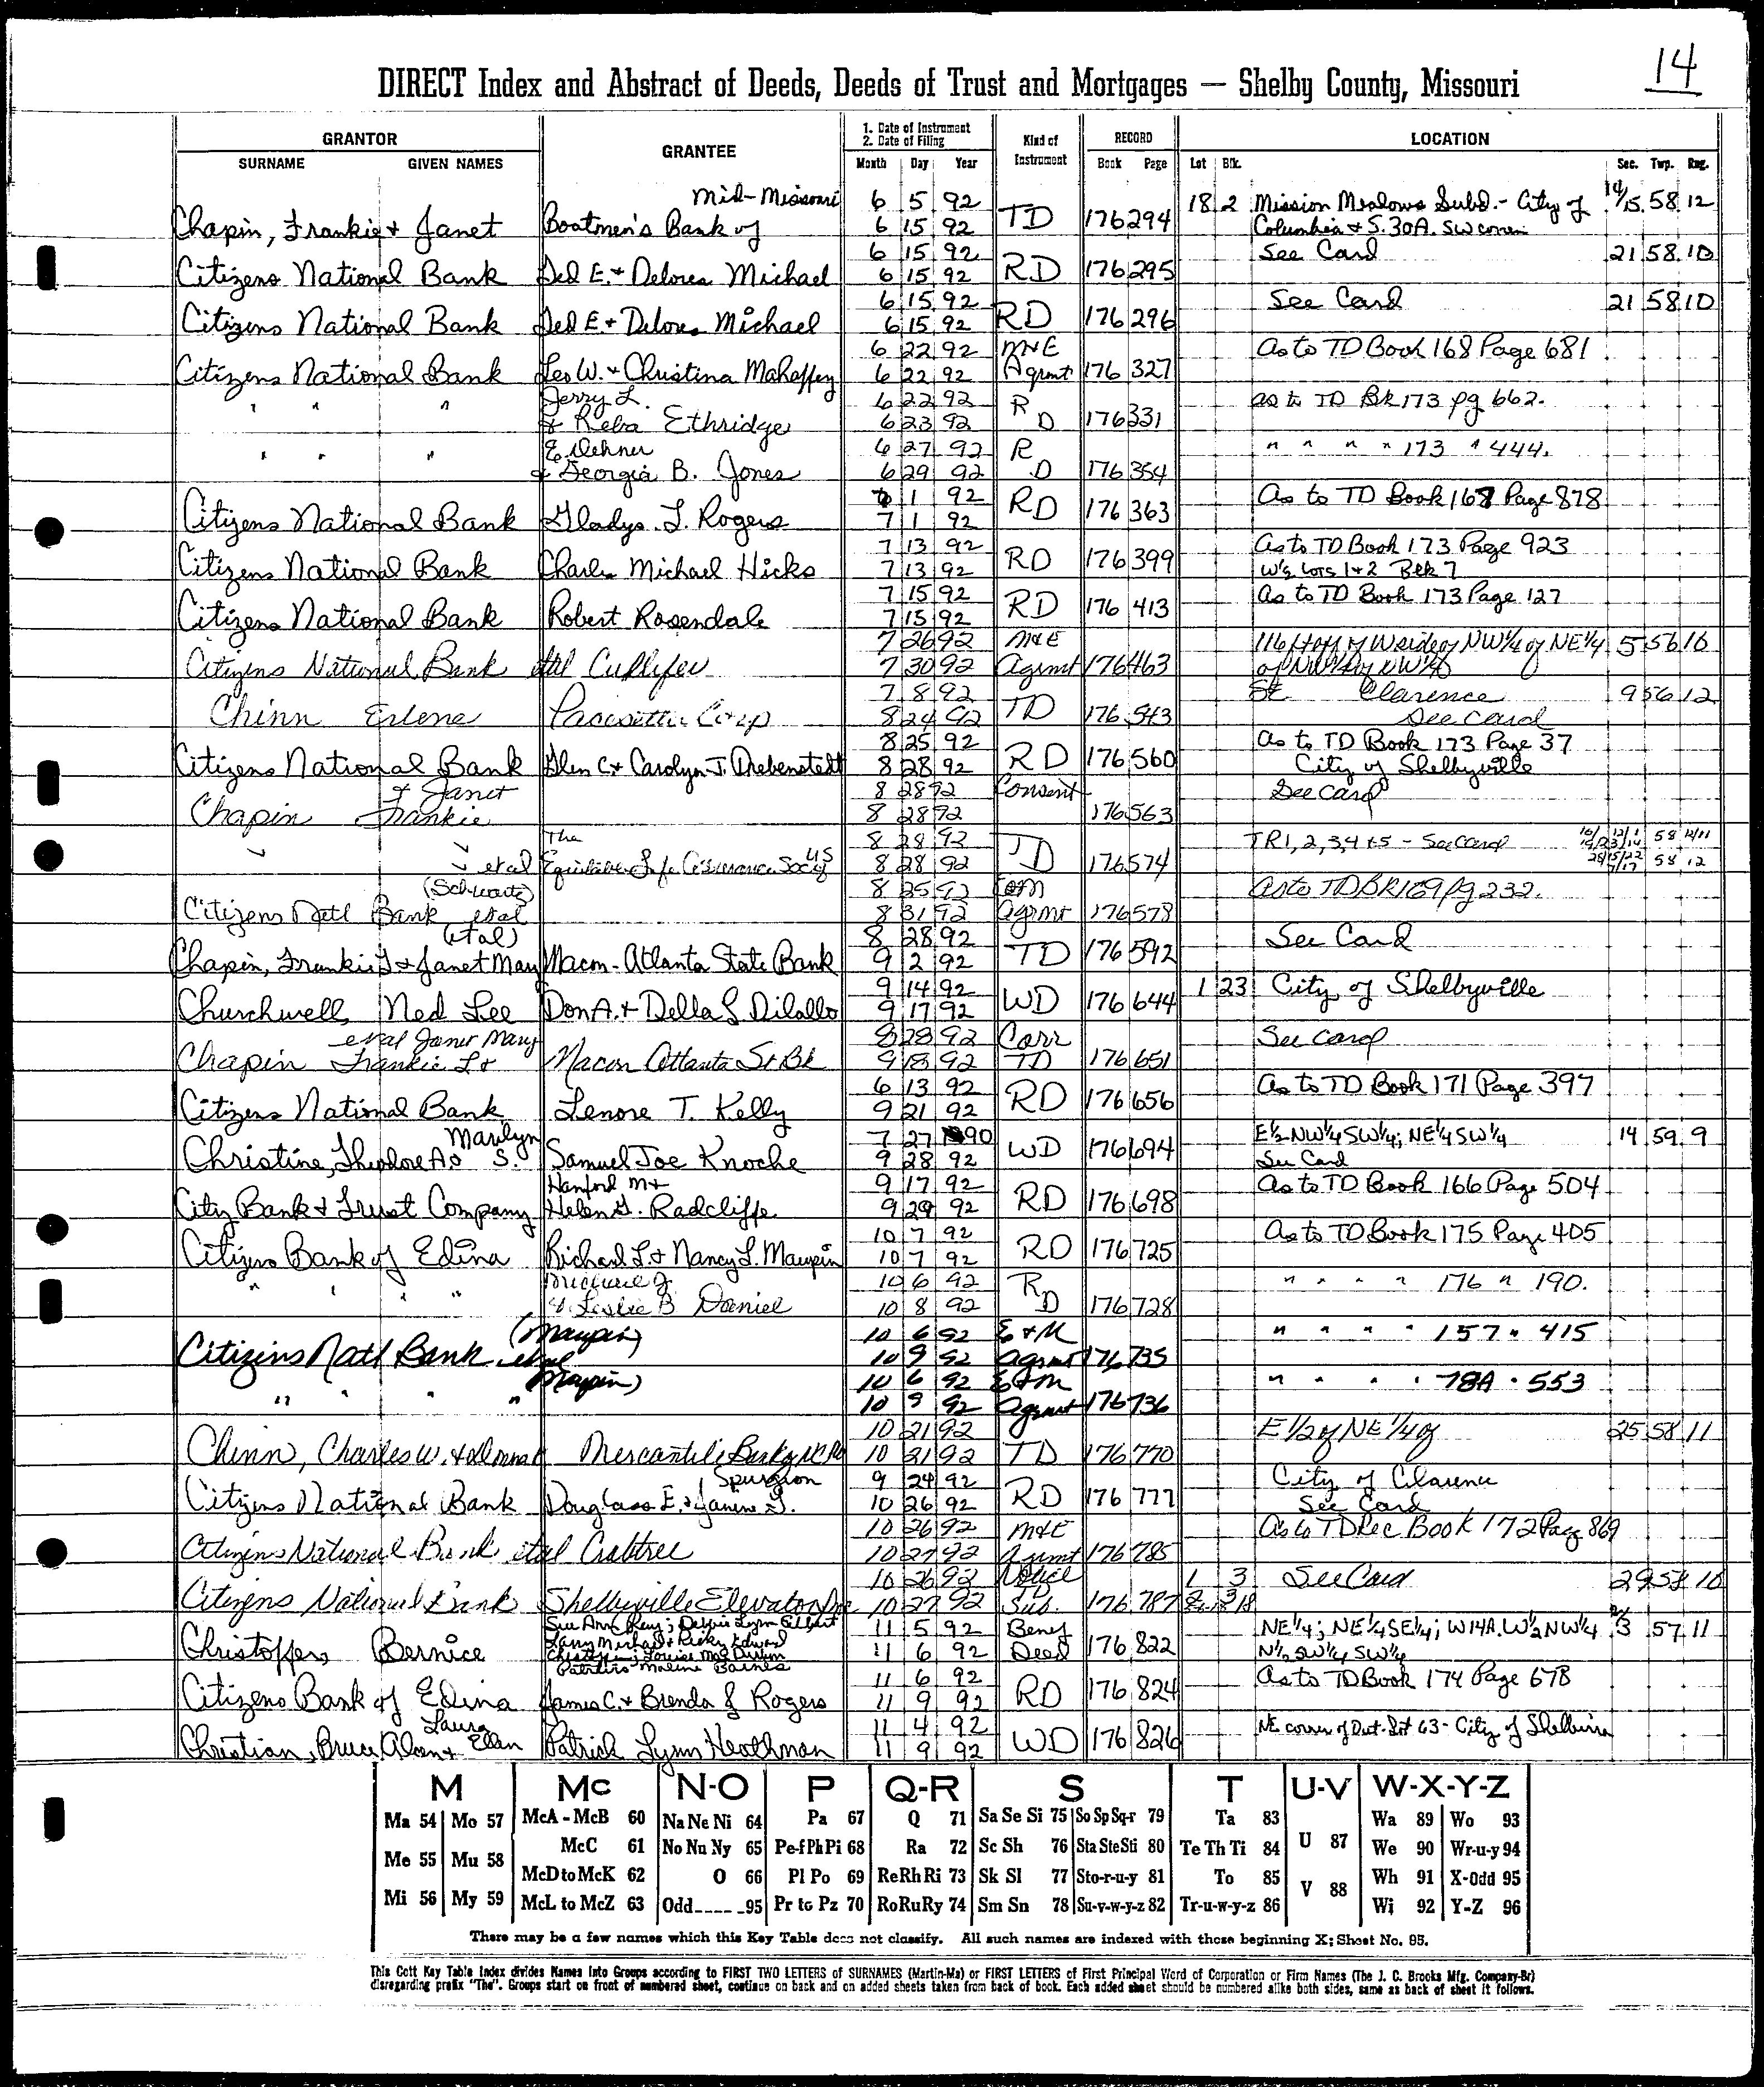 14
DIRECT Index and Abstract of Deeds, Deeds of Trust and Mortgages — Shelby County, Missouri
GRANTOR GRANTEE 1. Date of Instrument 2. Date of Filing Kind of Instrument RECORD LOCATION
SURNAME GIVEN NAMES Month Day Year Book Page Lot Blk. Sec. Twp. Rng.
Mid-Missouri 6 5 92 18 2 Mission Meadows Subd. - City of 14/15 58 12
Chapin, Frankie & Janet Boatmen's Bank of 6 15 92 TD 176 294 Columbia & S. 30A. SW corner
6 15 92 See Card 21 58 10
Citizens National Bank Ted E. & Delores Michael 6 15 92 RD 176 295
6 15 92 See Card 21 58 10
Citizens National Bank Ted E. & Delores Michael 6 15 92 RD 176 296
6 22 92 M&E As to TD Book 168 Page 681
Citizens National Bank Leo W. & Christina Mahaffey 6 22 92 Agrmt 176 327
Jerry L. 6 22 92 R as to TD Bk 173 pg 662.
" " " & Reba Ethridge 6 23 92 D 176 331
E. Dehner 6 27 92 R " " " " 173 " 444.
" " " & Georgia B. Jones 6 29 92 D 176 354
1 92 As to TD Book 168 Page 878
Citizens National Bank Gladys L. Rogers 7 1 92 RD 176 363
7 13 92 As to TD Book 173 Page 923
Citizens National Bank Charles Michael Hicks 7 13 92 RD 176 399 W½ Lots 1+2 Blk 7
7 15 92 As to TD Book 173 Page 127
Citizens National Bank Robert Rosendale 7 15 92 RD 176 413
7 26 92 M&E 116 ft off of W side of NW¼ of NE¼ 5 56 10
Citizens National Bank etal Cullifer 7 30 92 Agrmt 176 463 of NW¼ of NW¼
7 8 92 Clarence 9 56 12
Chinn Erlene Pacesetter Corp 8 24 92 TD 176 543 See Card
8 25 92 As to TD Book 173 Page 37
Citizens National Bank Glen C. & Carolyn J. Drebenstedt 8 28 92 RD 176 560 City of Shelbyville
& Janet 8 28 92 Consent See Card
Chapin Frankie 8 28 92 176 563
The 8 28 92 TR 1, 2, 3, 4 + 5 - See Card 58
etal Equitable Life Assurance Soc of US 8 28 92 TD 176 574 58 12
(Schwartz) 8 25 92 As to TD BK 169 Pg 232.
Citizens Natl Bank etal 8 31 92 Agrmt 176 578
(etal) 8 28 92 See Card
Chapin, Frankie L & Janet Mary Macon-Atlanta State Bank 9 2 92 TD 176 592
9 14 92 1 23 City of Shelbyville
Churchwell, Ned Lee Don A. & Della S Dilallo 9 17 92 WD 176 644
etal Janet Mary 8 28 92 Corr See Card
Chapin Frankie L & Macon Atlanta St Bk 9 18 92 TD 176 651
6 13 92 As to TD Book 171 Page 397
Citizens National Bank Lenore T. Kelly 9 21 92 RD 176 656
Marilyn 7 27 90 E½ NW¼ SW¼; NE¼ SW¼ 14 59 9
Christine, Theodore A & S. Samuel Joe Knoche 9 28 92 WD 176 694 See Card
Hanford M & 9 17 92 As to TD Book 166 Page 504
City Bank & Trust Company Helen G. Radcliffe 9 29 92 RD 176 698
10 7 92 As to TD Book 175 Page 405
Citizens Bank of Edina Richard L. & Nancy L. Maupin 10 7 92 RD 176 725
Michael J. 10 6 92 R " " " " 176 " 190.
" " " " & Leslie B Daniel 10 8 92 D 176 728
(Maupin) 10 6 92 E & M " " " " 157 " 415
Citizens Natl Bank etal 10 9 92 Agrmt 176 735
(Maupin) 10 6 92 E & M " " " " 78A " 553
" " " " 10 9 92 Agrmt 176 736
10 21 92 E 1/2 of NE 1/4 of 25 58 11
Chinn, Charles W. & Donna K Mercantile Bank 10 21 92 TD 176 770
Spurgeon 9 24 92 City of Clarence
Citizens National Bank Douglass E. & Janine L. 10 26 92 RD 176 777 See Card
10 26 92 M&E As to TD Rec Book 172 Page 869
Citizens National Bank etal Crabtree 10 27 92 Agrmt 176 785
10 26 92 Notice 1 3 See Card 29 58 10
Citizens National Bank Shelbyville Elevator Inc 10 27 92 Sub. 176 787
Sue Ann Cheny; Debbie Lynn Gilbert 11 5 92 Benef NE¼; NE¼ SE¼; W14A. W½ NW¼ 57 11
Christoffers Bernice Larry Michael & Ricky Edward 11 6 92 Deed 176 822 N½ SW¼ SW¼
11 6 92 As to TD Book 174 Page 678
Citizens Bank of Edina James C. & Brenda S Rogers 11 9 92 RD 176 824
Laura 11 4 92 NE corner of Out-Lot 63 - City of Shelbina
Christian, Bruce Alan & Ellen Patrick Lynn Heathman 11 9 92 WD 176 826
M Mc N-O P Q-R S T U-V W-X-Y-Z
Ma 54 Mo 57 McA - McB 60 Na Ne Ni 64 Pa 67 Q 71 Sa Se Si 75 So Sp Sq-r 79 Ta 83 Wa 89 Wo 93
Me 55 Mu 58 McC 61 No Nu Ny 65 Pe-f Ph Pi 68 Ra 72 Sc Sh 76 Sta Ste Sti 80 Te Th Ti 84 U 87 We 90 Wr-u-y 94
McD to McK 62 O 66 Pl Po 69 Re Rh Ri 73 Sk Sl 77 Sto-r-u-y 81 To 85 V 88 Wh 91 X-Odd 95
Mi 56 My 59 McL to McZ 63 Odd 95 Pr to Pz 70 Ro Ru Ry 74 Sm Sn 78 Su-v-w-y-z 82 Tr-u-w-y-z 86 Wi 92 Y-Z 96
There may be a few names which this Key Table does not classify. All such names are indexed with those beginning X; Sheet No. 95.
This Cott Key Table Index divides Names into Groups according to FIRST TWO LETTERS of SURNAMES (Martin-Ma) or FIRST LETTERS of First Principal Word of Corporation or Firm Names (The J. C. Brooks Mfg. Company-Br)
disregarding prefix "The". Groups start on front of numbered sheet, continue on back and on added sheets taken from back of book. Each added sheet should be numbered alike both sides, same as back of sheet it follows.